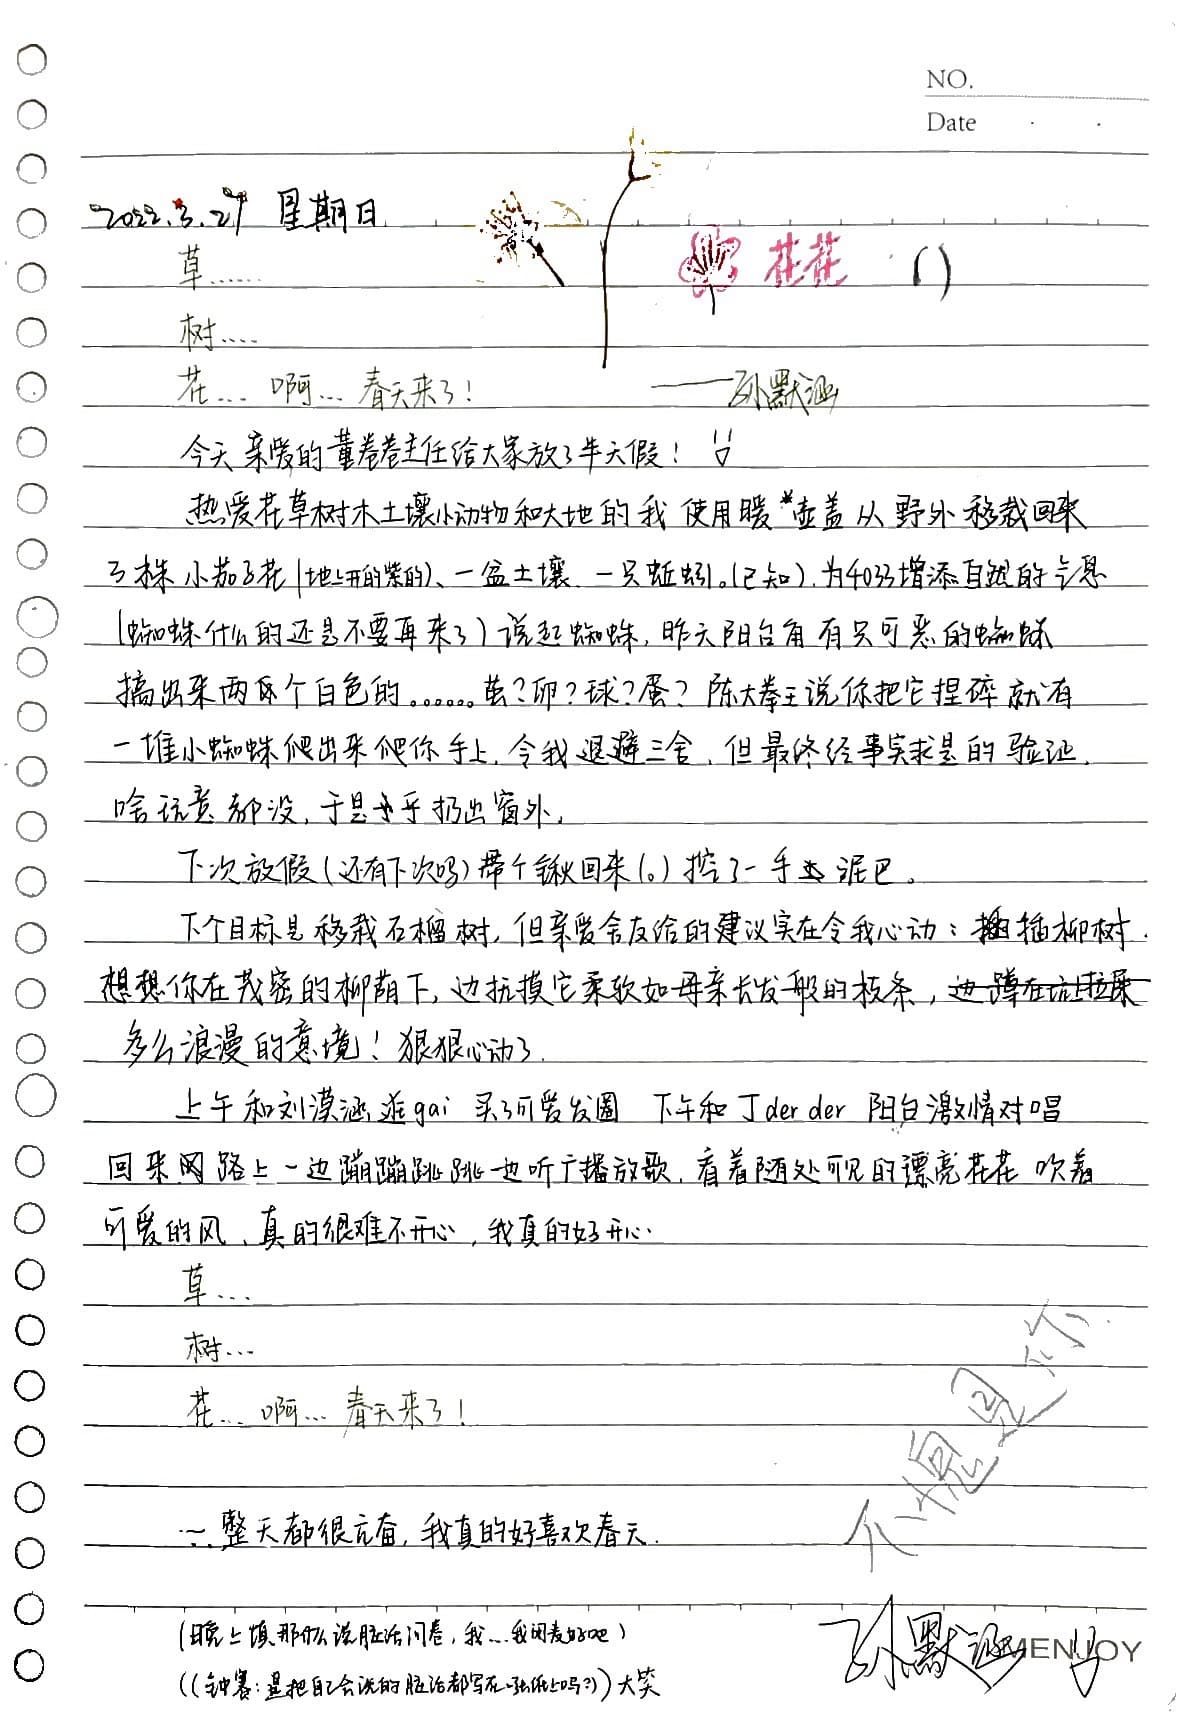 NO.
Date
2022.3.27 星期日
草……
花花 ()
树……
花… 啊… 春天来了!
——孙默涵
今天亲爱的董卷卷主任给大家放了半天假!
热爱花草树木土壤小动物和大地的我 使用暖壶盖从野外移栽回来
了株小茄子花(地上开的紫的)、一盆土壤、一只蚯蚓。(已知).为4033增添自然的气息
(蜘蛛什么的还是不要再来了)说起蜘蛛,昨天阳台角有只可恶的蜘蛛
搞出来两个白色的……茧?卵?球?蛋?陈大拳王说你把它捏碎就有
一堆小蜘蛛爬出来爬你手上,令我退避三舍,但最终经事实求是的验证,
啥玩意都没,于是乎扔出窗外,
下次放假(还有下次吗)带个锹回来(。)挖了一手泥巴。
下个目标是移栽石榴树,但亲爱舍友给的建议实在令我心动:插柳树.
想想你在茂密的柳荫下,边抚摸它柔软如母亲长发般的枝条,边蹲在坑上拉屎
多么浪漫的意境!狠狠心动了.
上午和刘漠涵逛gai 买了可爱发圈 下午和丁der der 阳台激情对唱
回来网路上一边蹦蹦跳跳一边听广播放歌,看着随处可见的漂亮花花 吹着
可爱的风,真的很难不开心,我真的好开心.
草…
树…
花… 啊… 春天来了!
一整天都很亢奋,我真的好喜欢春天.
不愧是你.
(晚上填那什么说脏话问卷,我…我闭麦好吧)
((钟赛:是把自己会说的脏话都写在张纸上吗?))大笑
孙默涵
MENJOY